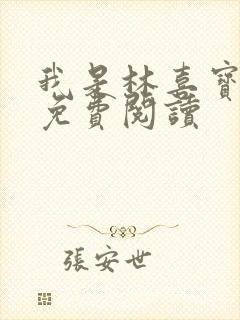 我是林喜寶
免費閱讀
張安世